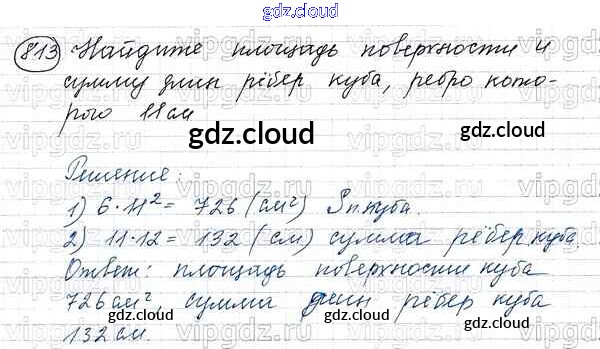 gdz.cloud
813 Найдите площадь поверхности и
сумму длин рёбер куба, ребро кото-
рого 11 см
gdz.cloud
Решение:
1) 6·11² = 726 (см²) Sп.куба.
2) 11·12 = 132 (см) сумма рёбер куба.
Ответ: площадь поверхности куба
726 см², сумма длин рёбер куба
132 см.
gdz.cloud gdz.cloud